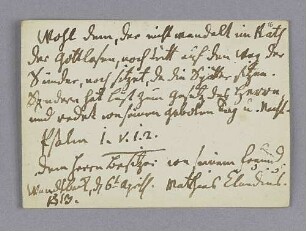 Wohl dem, der nicht wandelt im Rath
der Gottlosen, noch tritt auf den Weg der
Sünder, noch sitzet, da die Spötter sitzen.
Sondern hat Lust zum Gesetz des Herrn,
und redet von seinem Gesetze Tag u. Nacht.
Psalm 1. v. 1. 2.
dem Herrn Besitzer von seinem Freund
Wandsbeck, d. 6t April. Mathias Claudius.
1813.